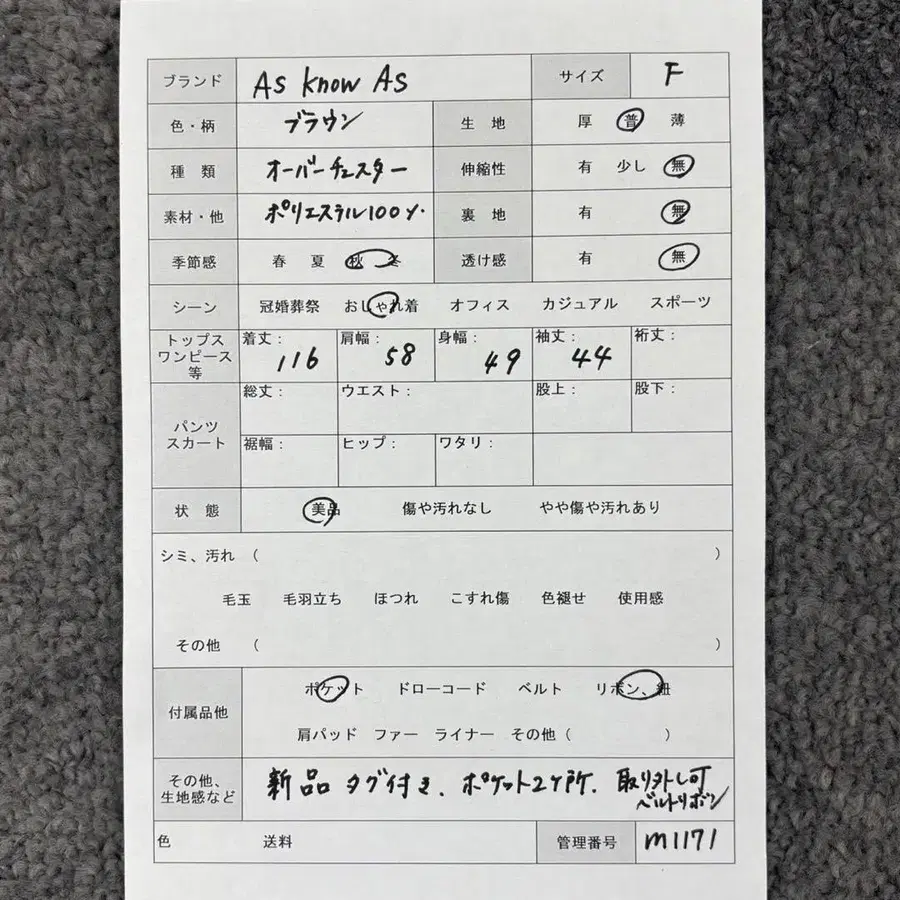 ブランド As know As サイズ F
色・柄 ブラウン 生 地 厚 普 薄
種 類 オーバーチェスター 伸縮性 有 少し 無
素材・他 ポリエステル100% 裏 地 有 無
季節感 春 夏 秋 冬 透け感 有 無
シーン 冠婚葬祭 おしゃれ着 オフィス カジュアル スポーツ
トップス
ワンピース
等
着丈: 116 肩幅: 58 身幅: 49 袖丈: 44 裄丈:
パンツ
スカート
総丈: ウエスト: 股上: 股下:
裾幅: ヒップ: ワタリ:
状 態 美品 傷や汚れなし やや傷や汚れあり
シミ、汚れ ( )
毛玉 毛羽立ち ほつれ こすれ傷 色褪せ 使用感
その他 ( )
付属品他
ポケット ドローコード ベルト リボン、紐
肩パッド ファー ライナー その他 ( )
その他、
生地感など
新品 タグ付き、ポケット2ケ所、取り外し可
ベルトリボン
色 送料 管理番号 m1171